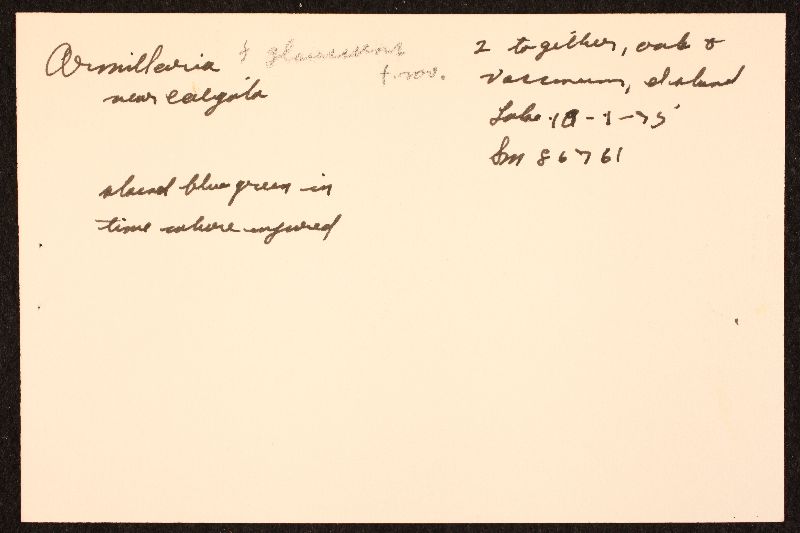 Armillaria f glaucescens
f. nov.
near caligata
stained blue green in
time where injured
2 together, oak &
Vaccinium, Island
Lake 10-1-75
Sm 86761